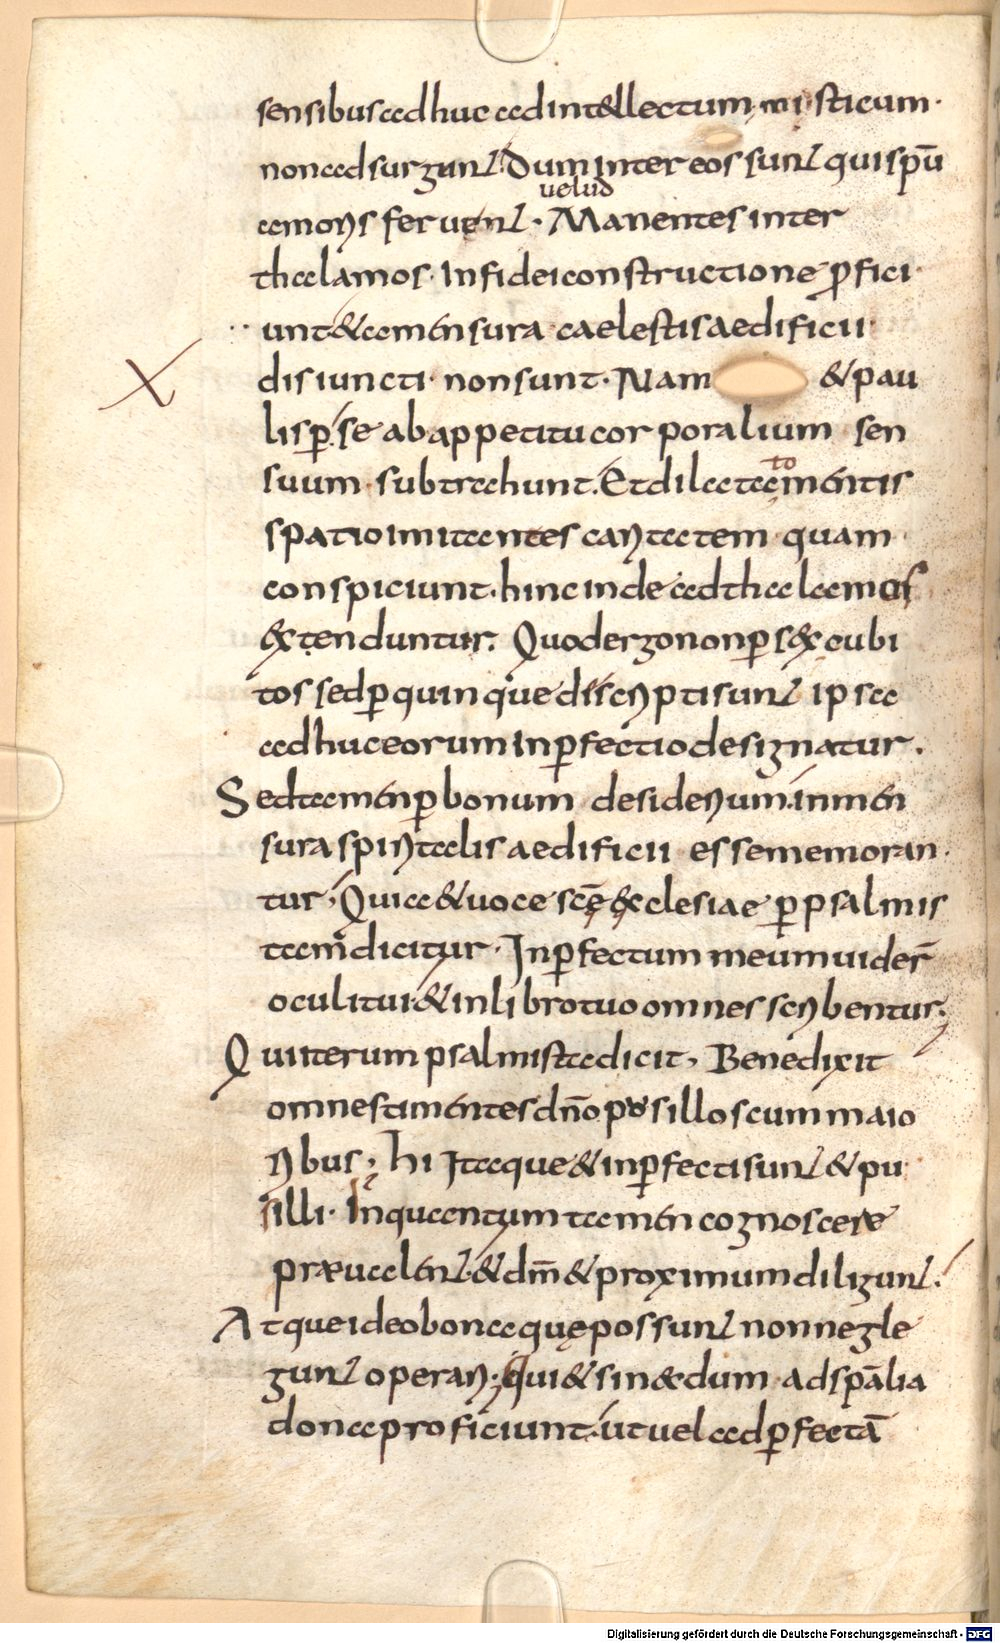 sensibus adhuc ad intellectum misticum·
non adsurgunt. Dum inter eos sunt qui spū
uelud
amoris feruent · Manentes inter
thalamos· In fidei constructione ꝓfici·
unt & a mensura caelestis aedificii·
disiuncti· non sunt· Nam & pau
lisꝑ se ab appetitu corporalium sen
suum· subtrahunt. Et dilatato mentis
spatio imitantes caritatem quam·
conspiciunt· hinc inde ad thalamos
extenduntur. Quod ergo non ꝑ sex cubi
tos sed ꝑ quinque discripti sunt ipsa
adhuc eorum inꝑfectio designatur.
Sed tamen ꝑ bonum desiderium in men
sura spiritalis aedificii esse memoran·
tur; Quia & uoce scē ęcclesiae ꝑ psalmis
tam dicitur· Inꝑfectum meum uider̄
oculi tui & in libro tuo omnes scribentur;
Qui iterum psalmista dicit, Benedixit
omnes timentes dn̄o pusillos cum maio
ribus; hi Itaque & inꝑfecti sunt & pu
silli· In quantum tamen cognoscere
præualent. & dm̄ & proximum diligunt.
Atque ideo bona quę possunt non negle
gunt operari; qui & si necdum ad spālia
dona proficiunt· ut uel ad ꝑfectā
Digitalisierung gefördert durch die Deutsche Forschungsgemeinschaft - DFG